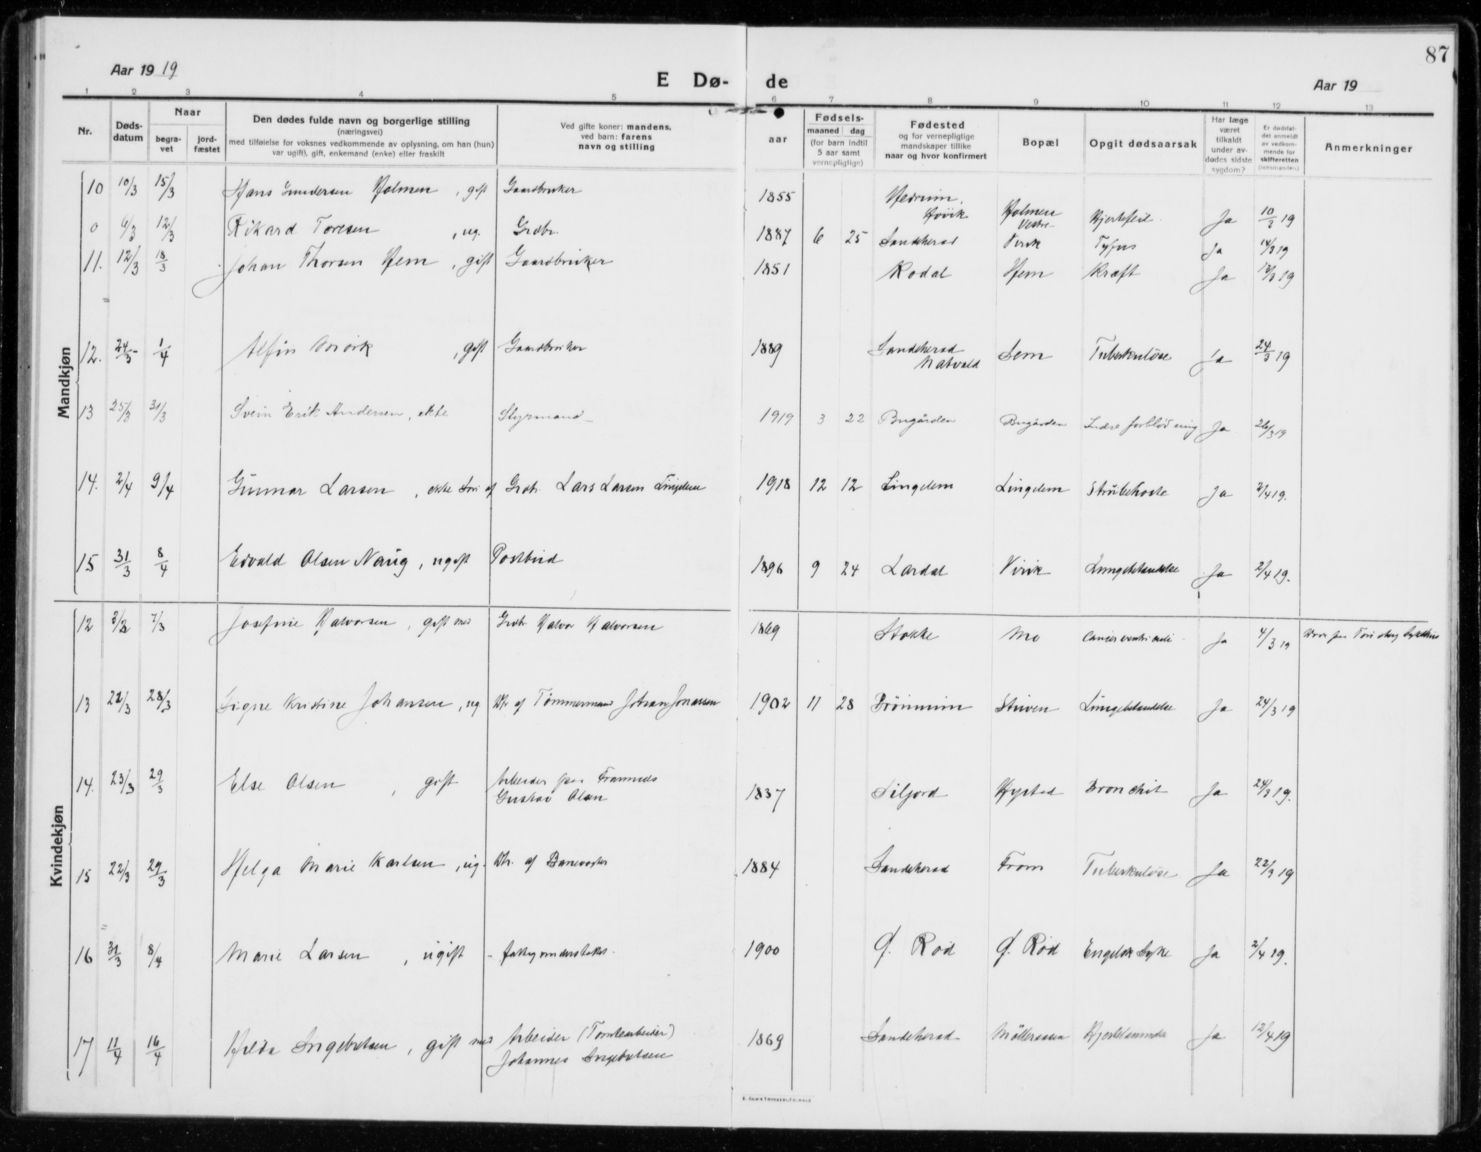 87
Aar 1919
E Dø- de
Aar 19
1 2 3 4 5 6 7 8 9 10 11 12 13
Nr.
Døds-datum
Naar
begra-vet
jord-fæstet
Den dødes fulde navn og borgerlige stilling
(næringsvei)
med tilføielse for voksnes vedkommende av oplysning, om han (hun)
var ugift, gift, enkemand (enke) eller fraskilt
Ved gifte koner: mandens,
ved barn: farens
navn og stilling
Fødsels-
aar
maaned dag
(for barn indtil
5 aar samt
vernepligtige)
Fødested
og for vernepligtige
mandskaper tillike
naar og hvor konfirmert
Bopæl
Opgit dødsaarsak
Har læge
været
tilkaldt
under av-
dødes sidste
sygdom?
Er dødsfal-
det anmeldt
av vedkom-
mende for
skifteretten
(lensmanden)
Anmerkninger
Mandkjøn
10 10/3 15/3 Hans Gundersen Holmen, gift Gaardbruker 1855 Hedrum. Holmen Hjertefeil. Ja 10/3 19
0 6/3 12/3 Rikard Toresen, ug. Grdbr. 1887 6 25 Sandeherad Virik Tyfus Ja 14/3 19
11. 12/3 18/3 Johan Thorsen Hem, gift Gaardbruker 1851 Rodal Hem Kræft Ja 19
12. 24/3 1/4 gift Gaardbruker 1889 Sandeherad Sem Tuberkuløse Ja 24/3 19
13 25/3 31/3 Svein Erik Andersen, ekte Styrmand 1919 3 22 Bugården Bugården Indre forblødning Ja 26/3 19
14. 2/4 9/4 Gunnar Larsen, ekte søn af Grdbr. Lars Larsen Lingelem 1918 12 12 Lingelem Lingelem Strubehoste Ja 2/4 19.
15 31/3 8/4 Edvald Olsen Naug, ugift Postbud 1896 9 24 Lardal Virik Lungebetændelse Ja 2/4 19.
Kvindekjøn
12 7/3 Josefine Halvorsen, gift med Grdbr. Halvor Halvorsen 1869 Stokke Mo Cancer ventriculi Ja 4/3 19
13 22/3 28/3 Signe Kristine Johansen, ug. Dtr. af Tømmermand Johan Jonassen 1902 11 28 Brønnum Stuven Lungebetændelse Ja 24/3 19
14. 23/3 29/3 Else Olsen, gift Arbeider paa Framnæs
Gustav Olsen 1837 Siljord Nystad Bronchit Ja 24/3 19.
15 22/3 29/3 Helga Marie Karlsen, ug. Dtr. af Banevogter 1884 Sandeherad From Tuberkuløse Ja 22/3 19
16 31/3 8/4 Marie Larsen, ugift - fattigunderstøttet. 1900 Ø. Rød Ø. Rød Engelsk Syke Ja 2/4 19.
17 11/4 16/4 Hilda Ingebretsen, gift med Arbeider (Tomtearbeider)
Johannes Ingebretsen 1869 Sandeherad Ja 12/4 19